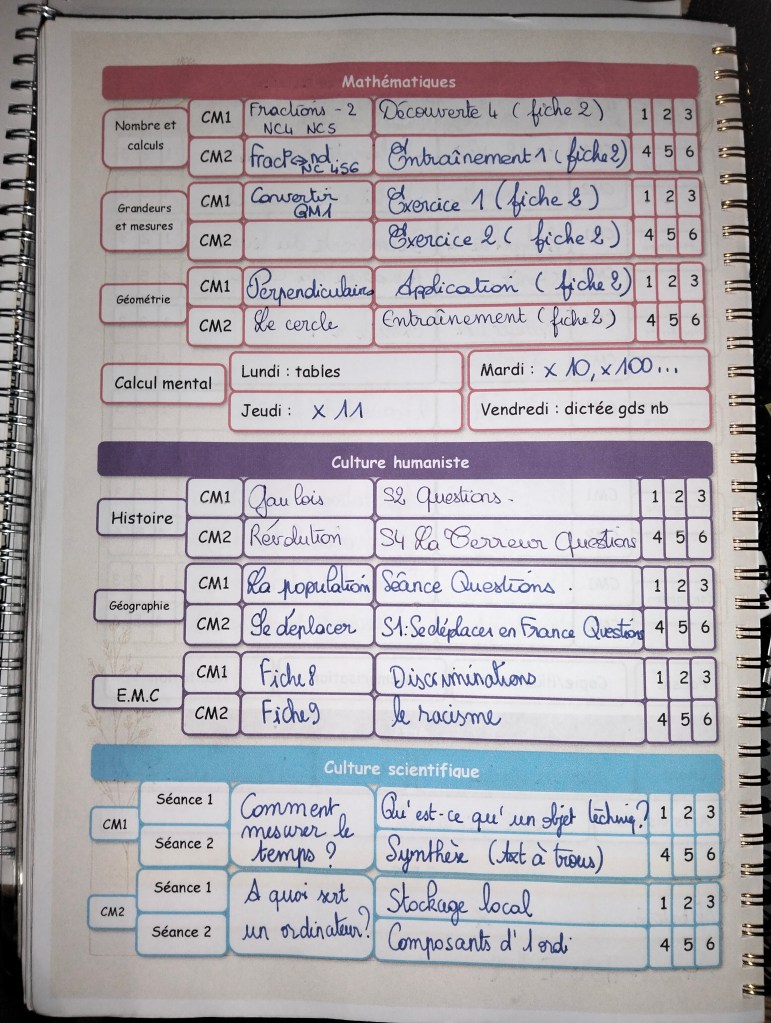 Mathématiques
Nombre et calculs
CM1 Fractions - 2 Découverte 4 (fiche 2) 1 2 3
NC4 NC5
CM2 Entraînement 1 (fiche 2) 4 5 6
NC 456
Grandeurs et mesures
CM1 Convertir Exercice 1 (fiche 2) 1 2 3
GM1
CM2 Exercice 2 (fiche 2) 4 5 6
Géométrie
CM1 Perpendiculaire Application (fiche 2) 1 2 3
CM2 Le cercle Entraînement (fiche 2) 4 5 6
Calcul mental
Lundi : tables Mardi : x 10, x 100...
Jeudi : x 11 Vendredi : dictée gds nb
Culture humaniste
Histoire
CM1 Gaulois S2 Questions. 1 2 3
CM2 Révolution S4 La Terreur Questions 4 5 6
Géographie
CM1 La population Séance Questions. 1 2 3
CM2 Se déplacer S1: Se déplacer en France Questions 4 5 6
E.M.C
CM1 Fiche 8 Discriminations 1 2 3
CM2 Fiche 9 le racisme 4 5 6
Culture scientifique
CM1
Séance 1 Comment Qu'est-ce qu'un objet techniq? 1 2 3
mesurer le
Séance 2 temps ? Synthèse (txt à trous) 4 5 6
CM2
Séance 1 A quoi sert Stockage local 1 2 3
Séance 2 un ordinateur? Composants d'1 ordi 4 5 6